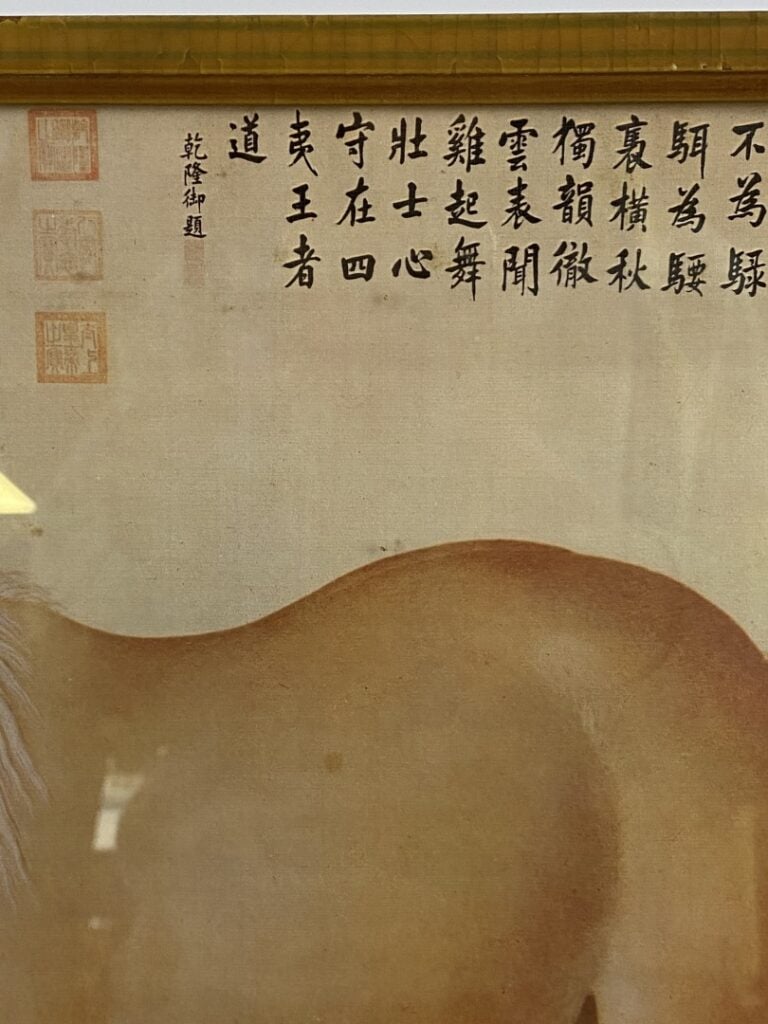 不為騄
駬為騕
褭橫秋
獨韻徹
雲表聞
雞起舞
壯士心
守在四
夷王者
道
乾隆御題